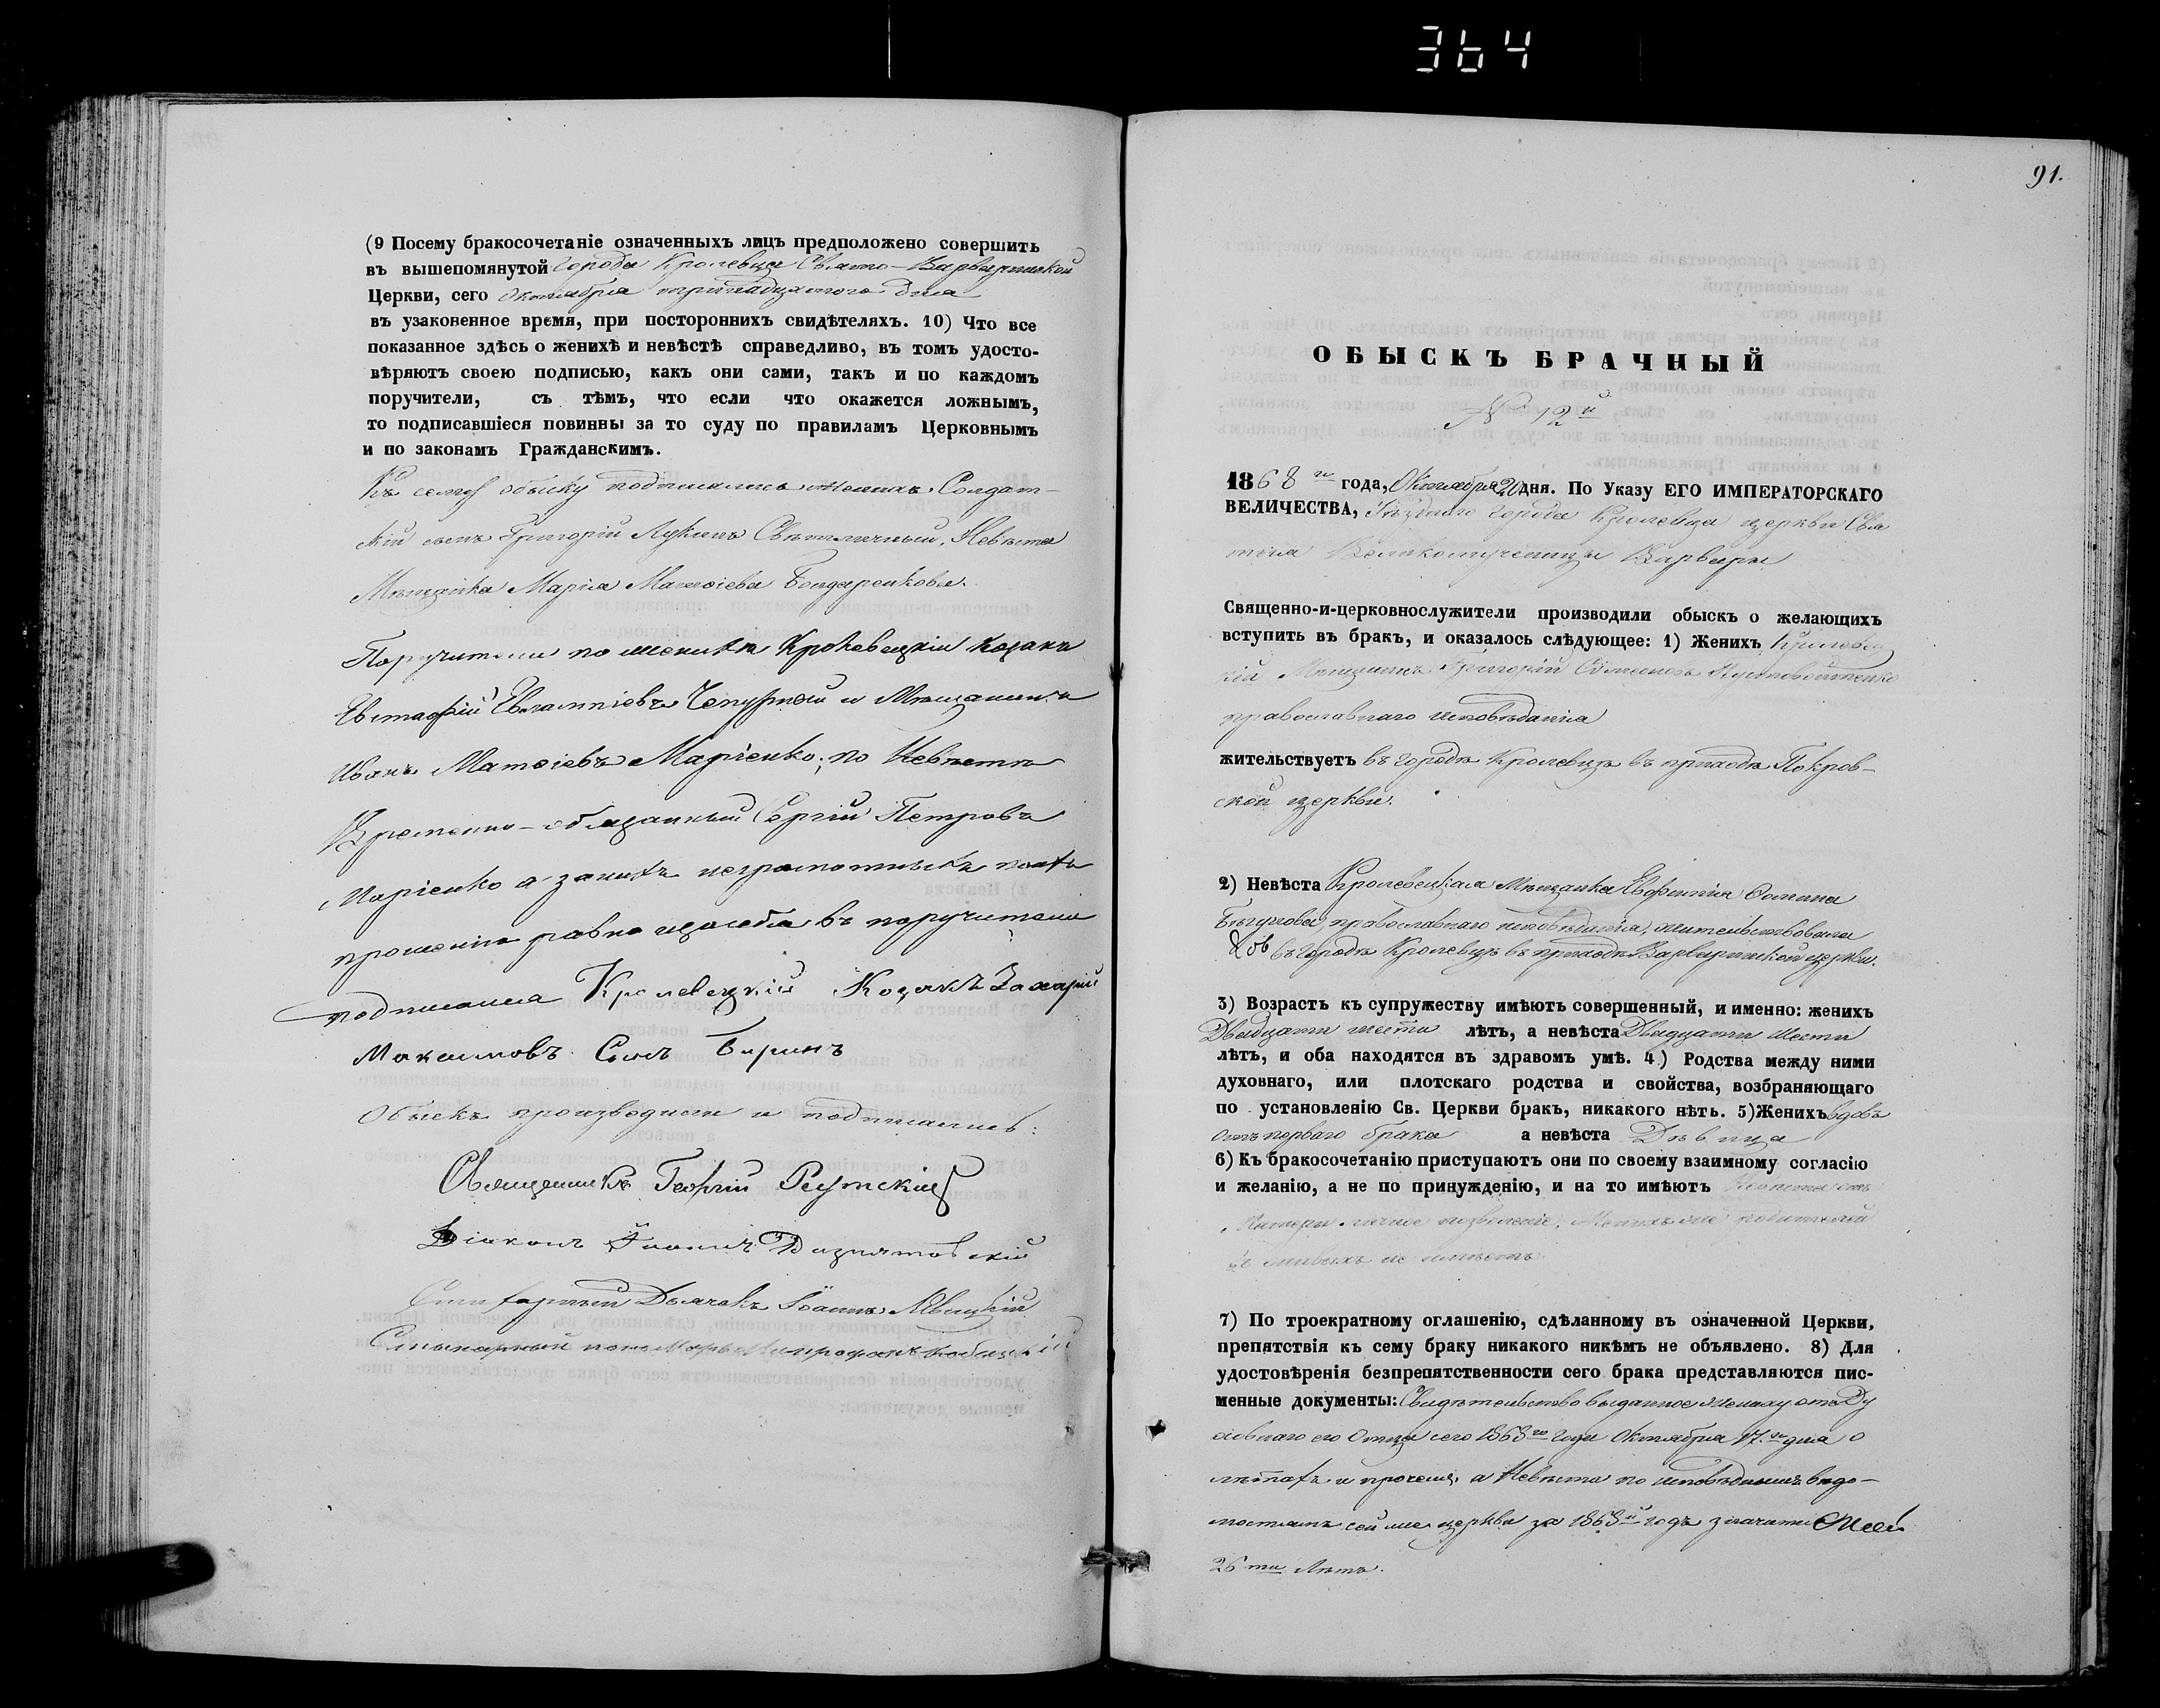 364
(9 Посему бракосочетаніе означенныхъ лицъ предположено совершить
въ вышепомянутой города Кролевца Свято-Варваринской
Церкви, сего Октября тринадцатого дня
въ узаконенное время, при постороннихъ свидѣтеляхъ. 10) Что все
показанное здѣсь о женихѣ и невѣстѣ справедливо, въ томъ удосто-
вѣряютъ своею подписью, какъ они сами, такъ и по каждомъ
поручители, съ тѣмъ, что если что окажется ложнымъ,
то подписавшіеся повинны за то суду по правиламъ Церковнымъ
и по законамъ Гражданскимъ.
Къ сему обыску подписались женихъ Солдат-
скій сынъ Григорій Лукинъ Свѣтличный, Невѣста
Мѣщанка Марія Матѳіева Бондаренкова.
Поручители по женихѣ Кролевецкій козакъ
Евстафій Евлампіевъ Чепурной и Мѣщанинъ
Иванъ Матѳіевъ Марченко, по Невѣстѣ
Временно-обязанный Сергій Петровъ
Марченко а за нихъ неграмотныхъ по ихъ
прошенію равно и за себя въ поручители
подписался Кролевецкій Козакъ Захарій
Максимовъ Сынъ Биринъ
Обыскъ производили и подписались:
Священникъ Георгій Реутскій
Діаконъ Іоаннъ
Дьячокъ Іоаннъ
пономарь Митрофанъ
91.
ОБЫСКЪ БРАЧНЫЙ
№ 12й
1868 го года, Октября 20 дня. По Указу ЕГО ИМПЕРАТОРСКАГО
ВЕЛИЧЕСТВА, Уѣзднаго города Кролевца церкви Свя
тыя Великомученицы Варвары
Священно-и-церковнослужители производили обыскъ о желающихъ
вступить въ бракъ, и оказалось слѣдующее: 1) Женихъ Кролевец
кій Мѣщанинъ Григорій Симеоновъ Пустовойтенко
православнаго исповѣданія
жительствуетъ въ городѣ Кролевцѣ въ приходѣ Покров-
ской церкви.
2) Невѣста Кролевецкая Мѣщанка Евфимія Ѳомина
Бѣгунова, православнаго исповѣданія, жительствовала
въ городѣ Кролевцѣ въ приходѣ Варваринской церкви.
3) Возрастъ къ супружеству имѣютъ совершенный, и именно: женихъ
Двадцати шести лѣтъ, а невѣста Двадцати шести
лѣтъ, и оба находятся въ здравомъ умѣ. 4) Родства между ними
духовнаго, или плотскаго родства и свойства, возбраняющаго
по установленію Св. Церкви бракъ, никакого нѣтъ. 5) Женихъ вдовъ
отъ перваго брака а невѣста Дѣвица
6) Къ бракосочетанію приступаютъ они по своему взаимному согласію
и желанію, а не по принужденію, и на то имѣютъ Невѣста отъ
Матери личное позволеніе, Женихъ же родителей
въ живыхъ не имѣетъ.
7) По троекратному оглашенію, сдѣланному въ означенной Церкви,
препятствія къ сему браку никакого никѣмъ не объявлено. 8) Для
удостовѣренія безпрепятственности сего брака представляются пис-
менные документы: Свидѣтельство выданное жениху отъ Ду
ховнаго его Отца сего 1868го года Октября 17го дня о
лѣтахъ и прочемъ, а Невѣста по исповѣднымъ вѣдо-
мостямъ сей же церкви за 1868й годъ значится
26ти лѣтъ.